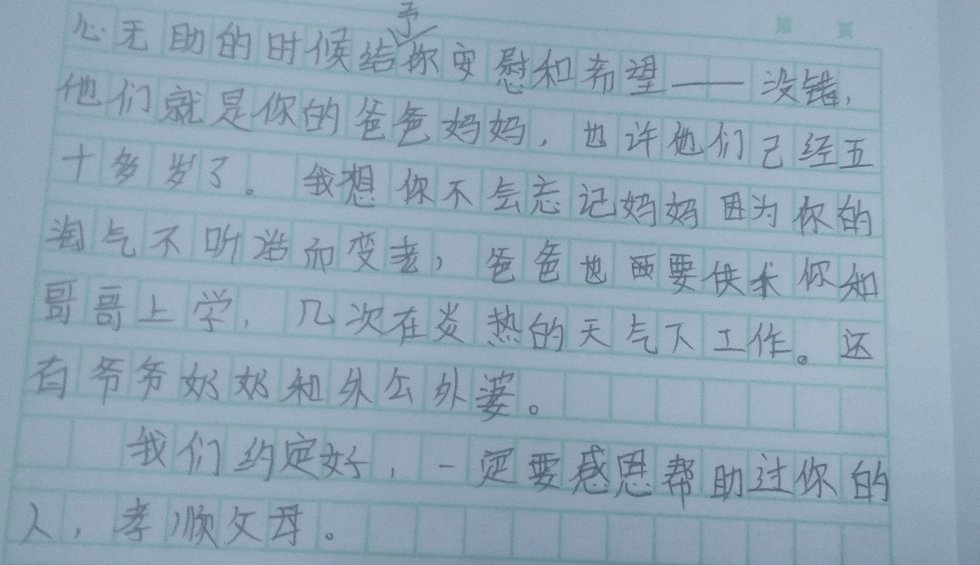 第 页
心无助的时候给予你安慰和希望——没错，
他们就是你的爸爸妈妈，也许他们已经五
十多岁了。我想你不会忘记妈妈因为你的
淘气不听话而变老，爸爸也要供你和
哥哥上学，几次在炎热的天气下工作。还
有爷爷奶奶和外公外婆。
我们约定好，一定要感恩帮助过你的
人，孝顺父母。